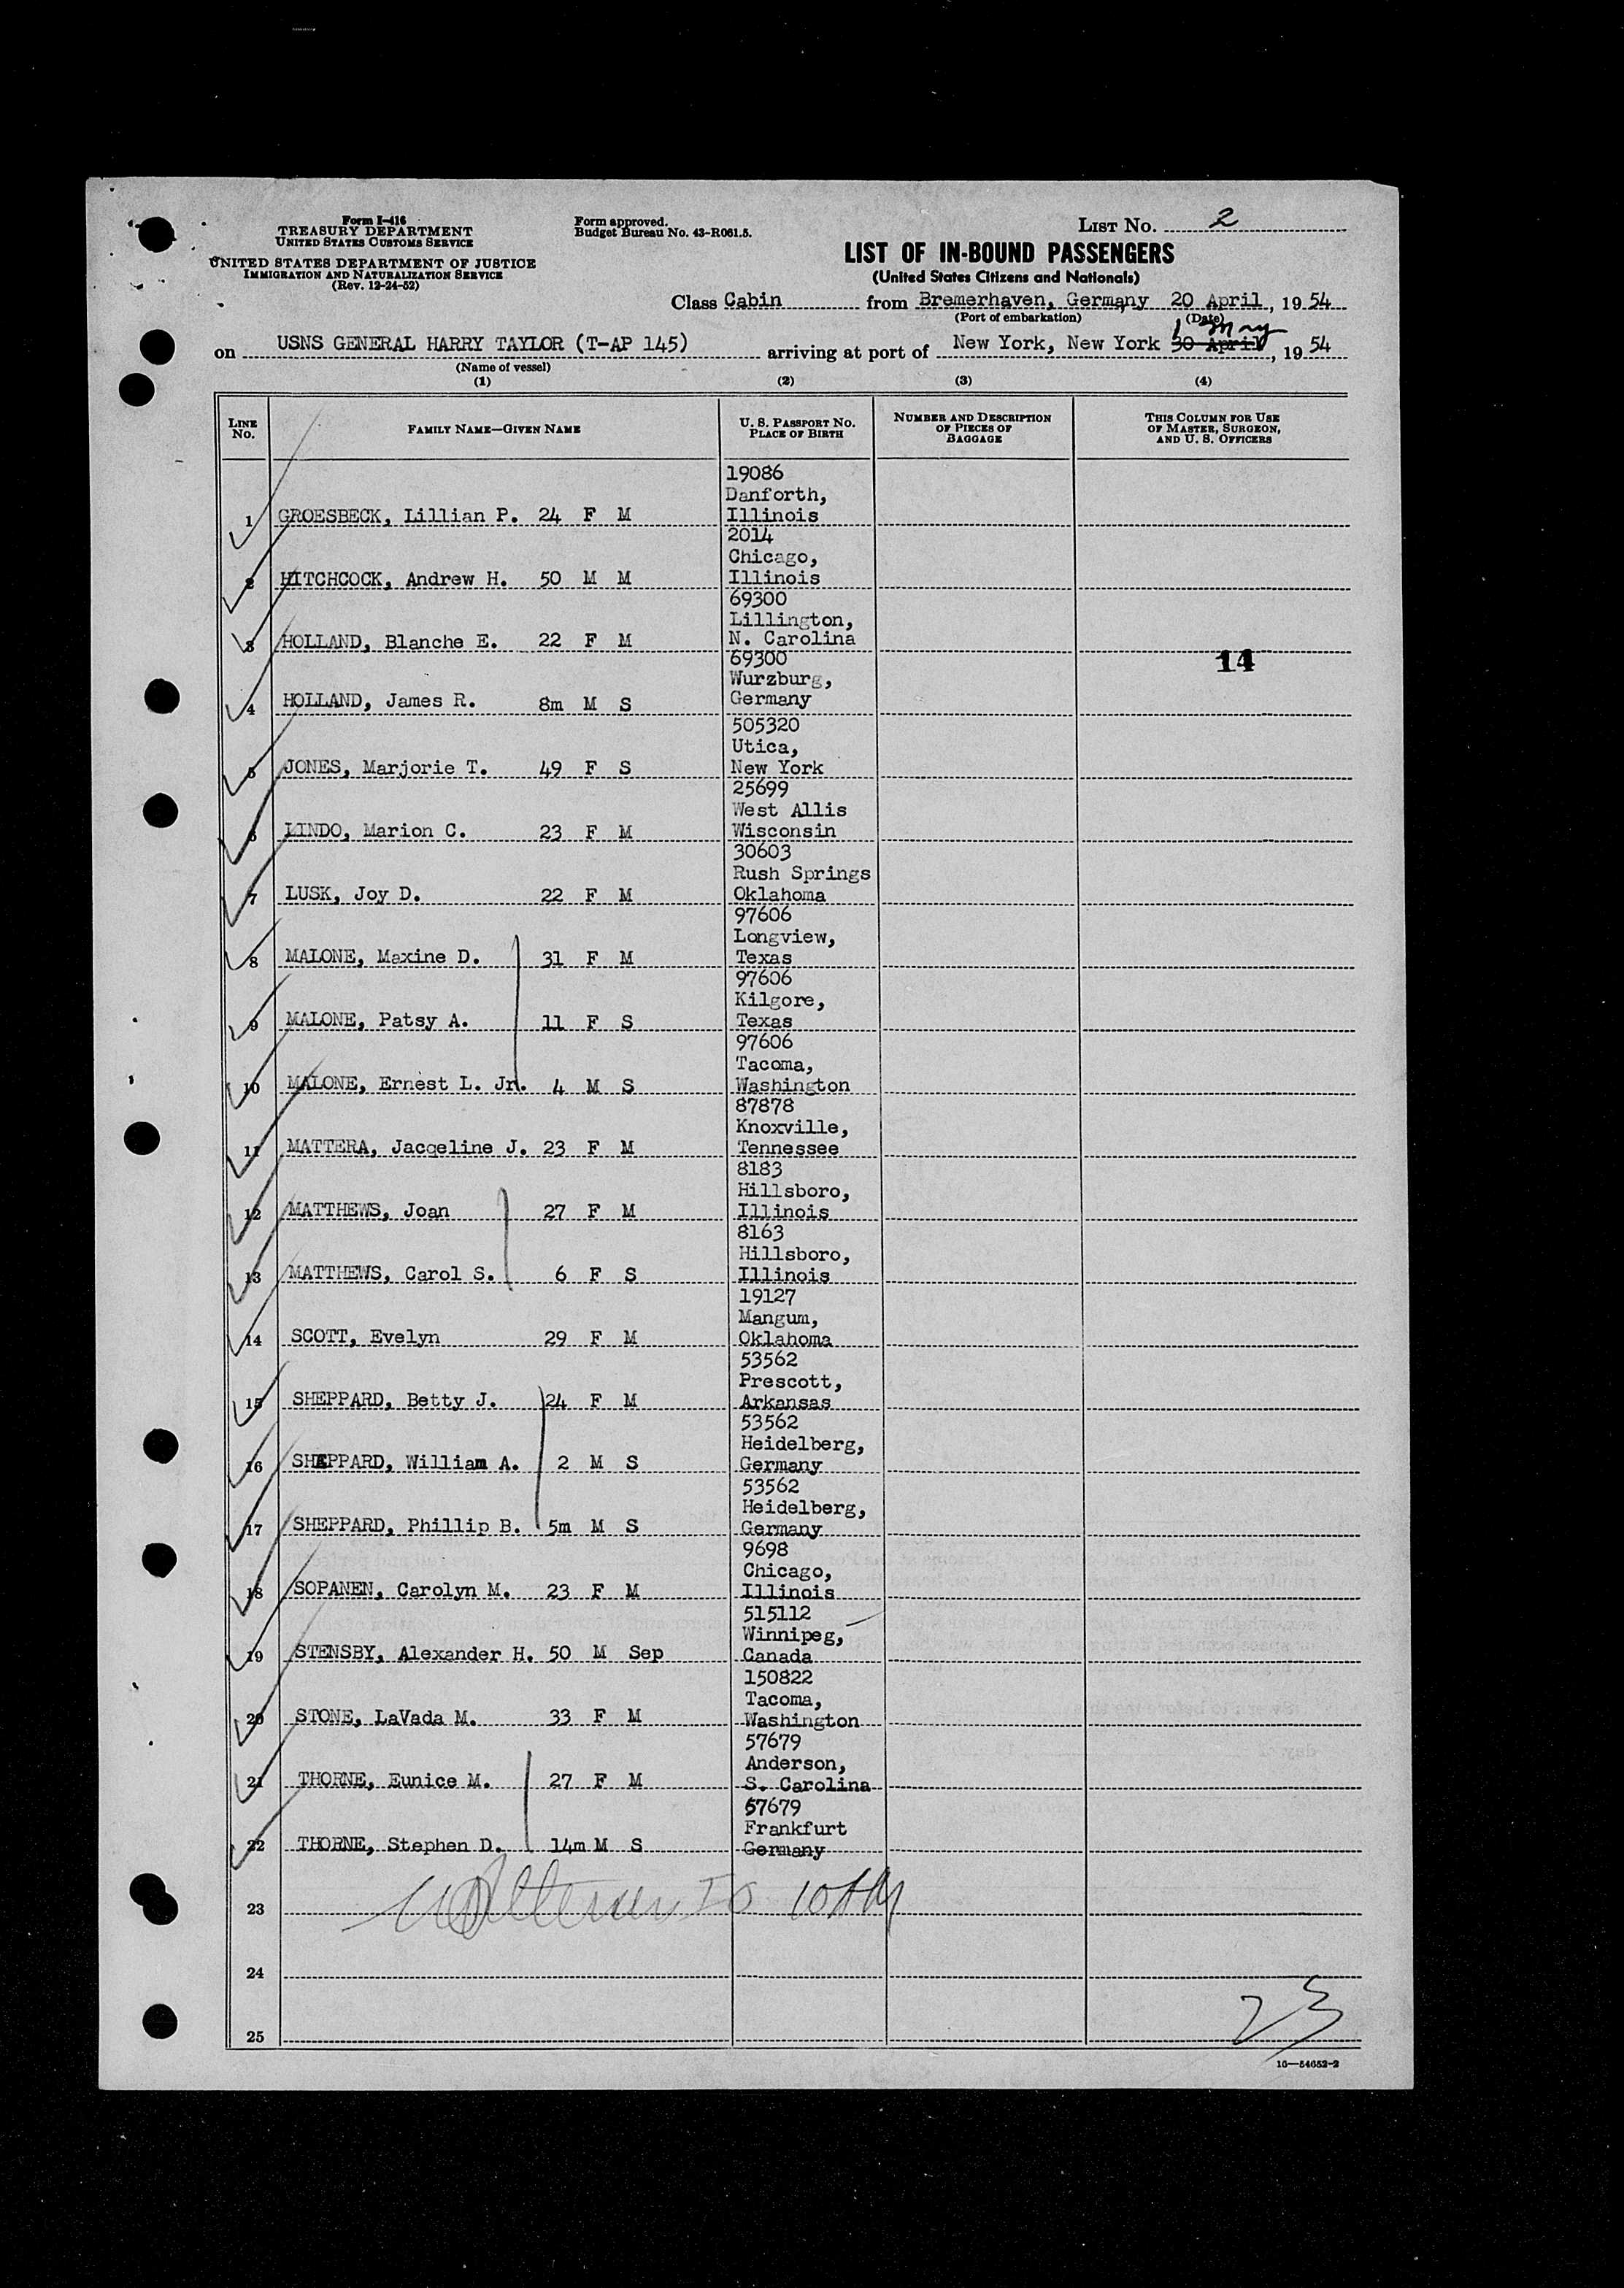 Form I-416
TREASURY DEPARTMENT
UNITED STATES CUSTOMS SERVICE
UNITED STATES DEPARTMENT OF JUSTICE
IMMIGRATION AND NATURALIZATION SERVICE
(Rev. 12-24-52)
Form approved.
Budget Bureau No. 43-R061.5.
LIST NO. 2
LIST OF IN-BOUND PASSENGERS
(United States Citizens and Nationals)
Class Cabin from Bremerhaven, Germany 20 April, 1954
(Port of embarkation) (Date)
1 May
on USNS GENERAL HARRY TAYLOR (T-AP 145) arriving at port of New York, New York 30 April, 1954
(Name of vessel)
(1) (2) (3) (4)
LINE NO.
FAMILY NAME—GIVEN NAME
U. S. PASSPORT NO.
PLACE OF BIRTH
NUMBER AND DESCRIPTION
OF PIECES OF
BAGGAGE
THIS COLUMN FOR USE
OF MASTER, SURGEON,
AND U. S. OFFICERS
19086
Danforth,
1 GROESBECK, Lillian P. 24 F M Illinois
2014
Chicago,
2 HITCHCOCK, Andrew H. 50 M M Illinois
69300
Lillington,
3 HOLLAND, Blanche E. 22 F M N. Carolina
14
69300
Wurzburg,
4 HOLLAND, James R. 8m M S Germany
505320
Utica,
5 JONES, Marjorie T. 49 F S New York
25699
West Allis
6 LINDO, Marion C. 23 F M Wisconsin
30603
Rush Springs
7 LUSK, Joy D. 22 F M Oklahoma
97606
Longview,
8 MALONE, Maxine D. 31 F M Texas
97606
Kilgore,
9 MALONE, Patsy A. 11 F S Texas
97606
Tacoma,
10 MALONE, Ernest L. Jr. 4 M S Washington
87878
Knoxville,
11 MATTERA, Jacqeline J. 23 F M Tennessee
8183
Hillsboro,
12 MATTHEWS, Joan 27 F M Illinois
8163
Hillsboro,
13 MATTHEWS, Carol S. 6 F S Illinois
19127
Mangum,
14 SCOTT, Evelyn 29 F M Oklahoma
53562
Prescott,
15 SHEPPARD, Betty J. 24 F M Arkansas
53562
Heidelberg,
16 SHEPPARD, William A. 2 M S Germany
53562
Heidelberg,
17 SHEPPARD, Phillip B. 5m M S Germany
9698
Chicago,
18 SOPANEN, Carolyn M. 23 F M Illinois
515112
Winnipeg,
19 STENSBY, Alexander H. 50 M Sep Canada
150822
Tacoma,
20 STONE, LaVada M. 33 F M Washington
57679
Anderson,
21 THORNE, Eunice M. 27 F M S. Carolina
57679
Frankfurt
22 THORNE, Stephen D. 14m M S Germany
23
24
25
23
16—54652-2